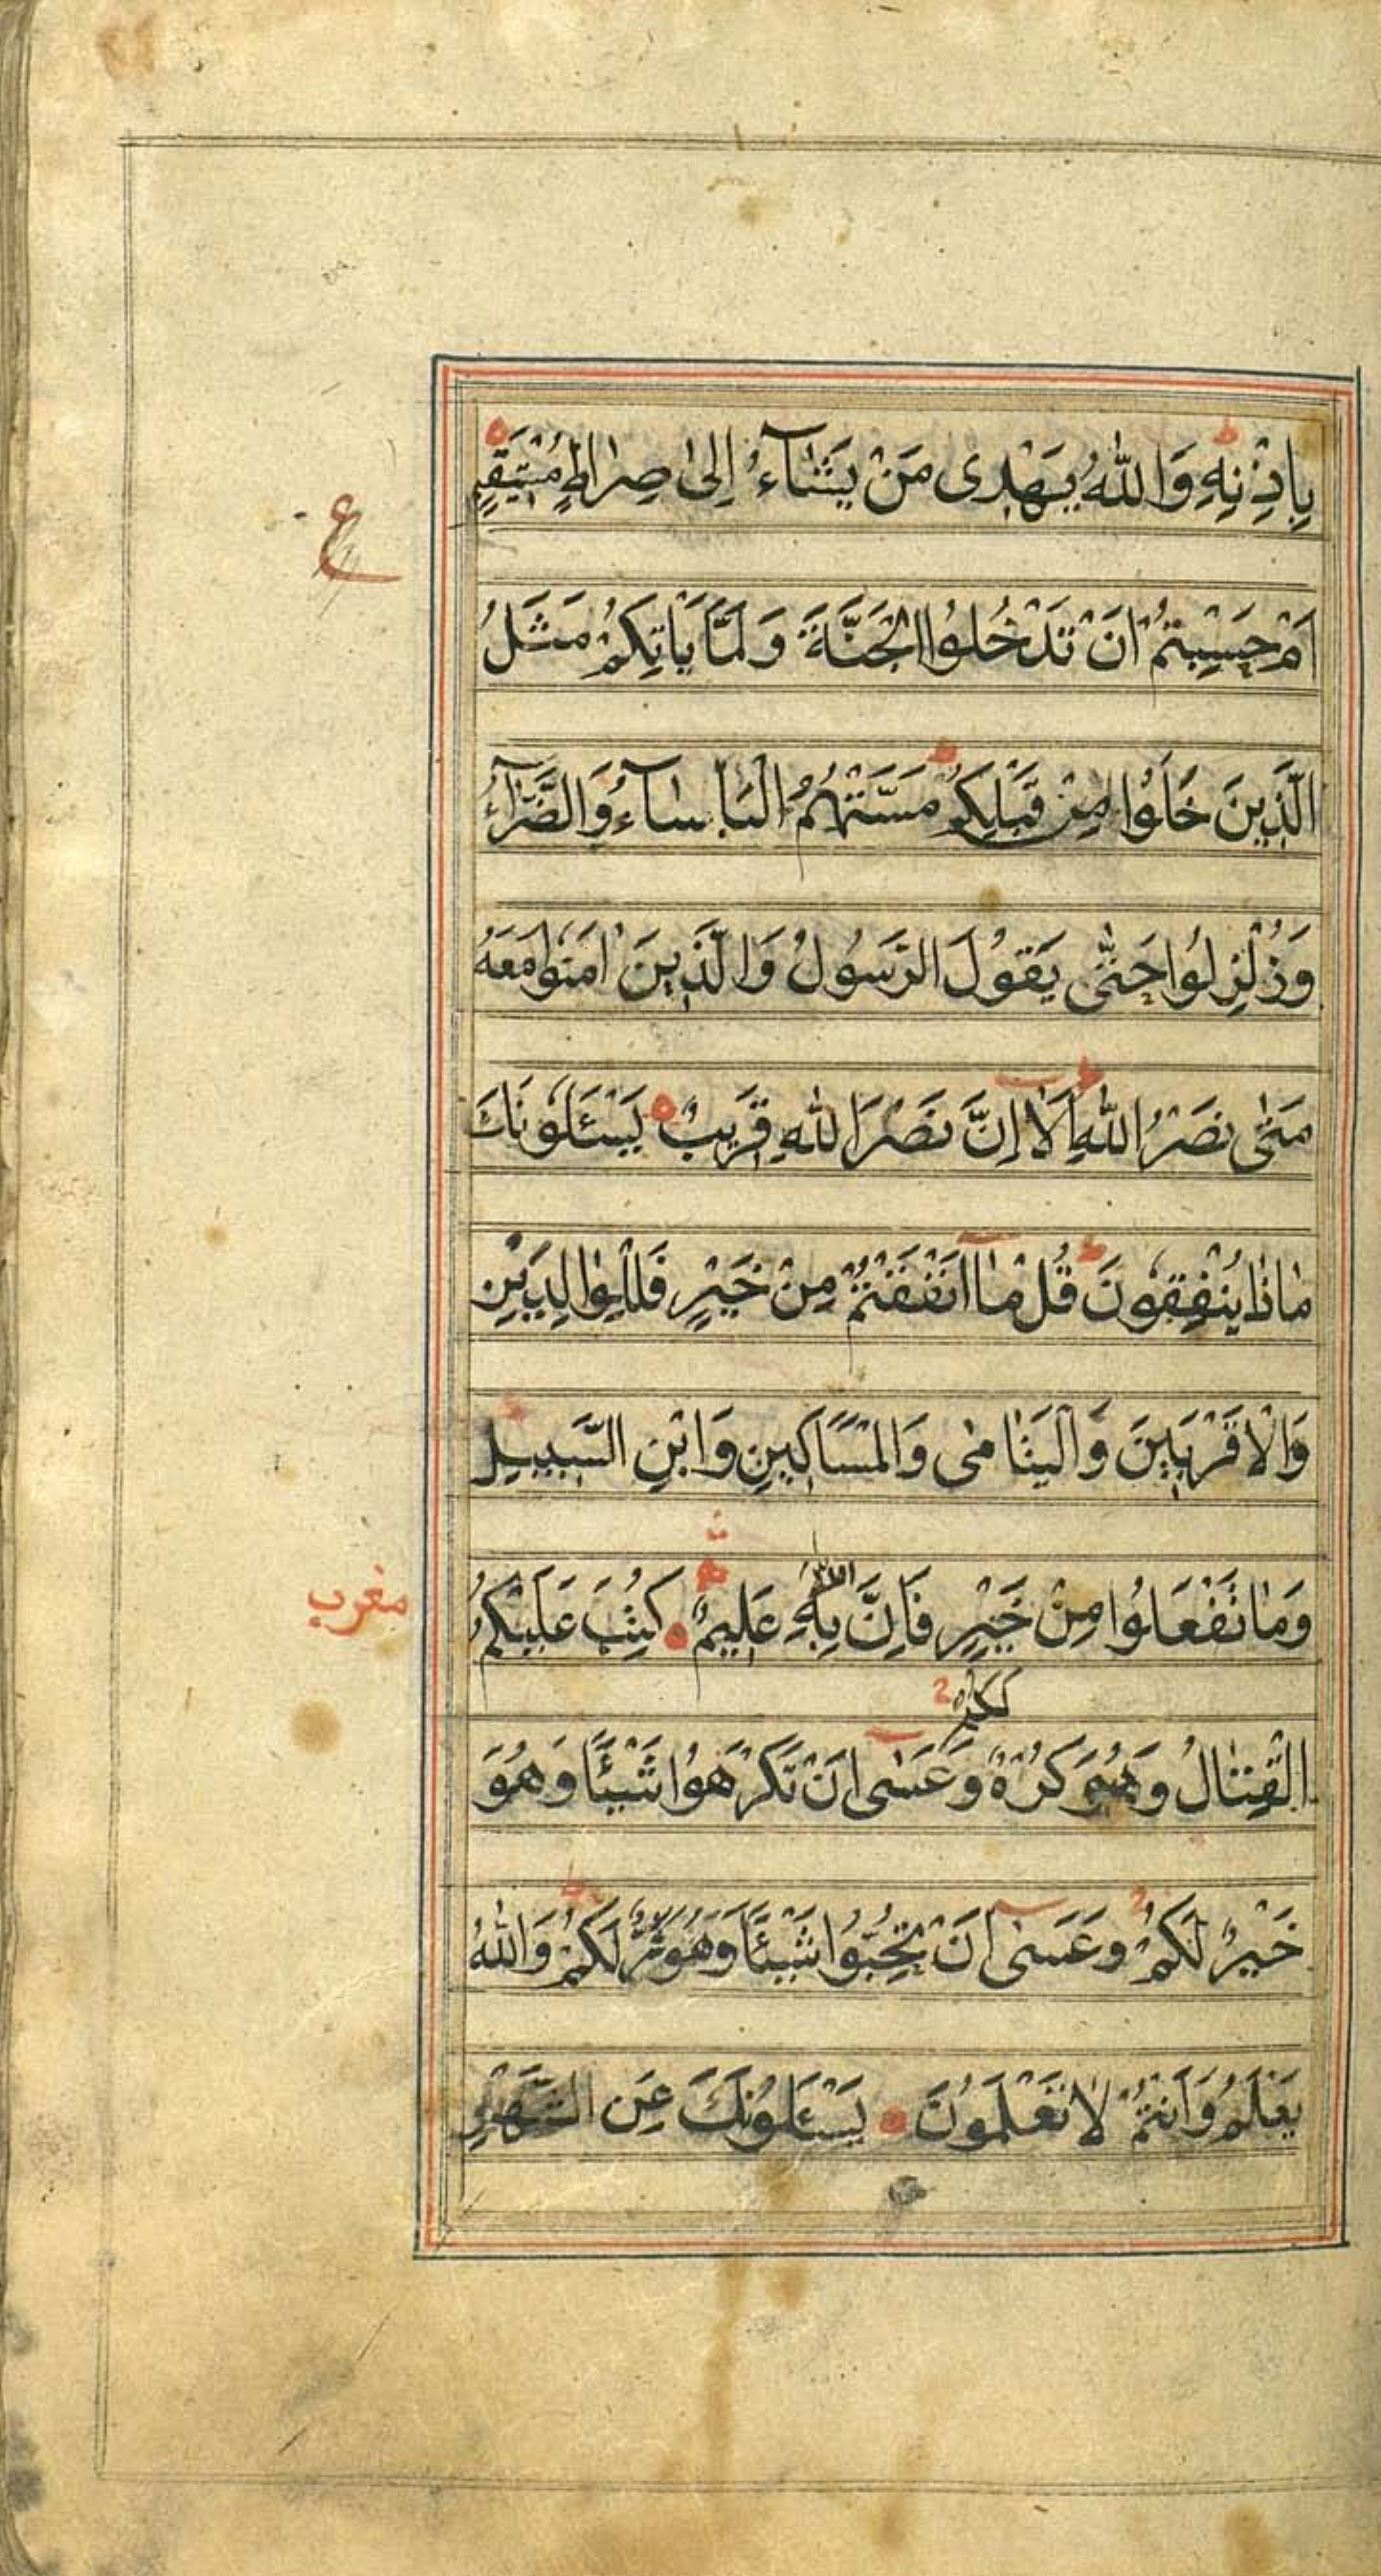 بِاِذْنِهِ وَاللّٰهُ يَهْدِى مَنْ يَشَآءُ اِلىٰ صِرٰاطٍ مُسْتَقٖيمٍ
ع
اَمْ حَسِبْتُمْ اَنْ تَدْخُلُوا الْجَنَّةَ وَلَمَّا يَاْتِكُمْ مَثَلُ
الَّذِينَ خَلَوْا مِنْ قَبْلِكُمْ مَسَّتْهُمُ الْبَاْسآءُ وَالضَّرّٰآءُ
وَزُلْزِلُوا حَتّٰى يَقُولَ الرَّسُولُ وَالَّذِينَ اٰمَنُوا مَعَهُ
مَتٰى نَصْرُ اللّٰهِ اَلٰا اِنَّ نَصْرَ اللّٰهِ قَرِيبٌ يَسْئَلُونَكَ
مٰاذٰا يُنْفِقُونَ قُلْ مٰا اَنْفَقْتُمْ مِنْ خَيْرٍ فَلِلْوٰالِدَيْنِ
وَالْاَقْرَبِينَ وَالْيَتٰامٰى وَالْمَسَاكِينِ وَابْنِ السَّبِيلِ
وَمٰا تَفْعَلُوا مِنْ خَيْرٍ فَاِنَّ اللّٰهَ بِهِ عَلِيمٌ كُتِبَ عَلَيْكُمُ
مغرب
الْقِتٰالُ وَهُوَ كُرْهٌ لَكُمْ وَعَسٰى اَنْ تَكْرَهُوا شَيْئًا وَهُوَ
خَيْرٌ لَكُمْ وَعَسٰى اَنْ تُحِبُّوا شَيْئًا وَهُوَ شَرٌّ لَكُمْ وَاللّٰهُ
يَعْلَمُ وَاَنْتُمْ لٰا تَعْلَمُونَ يَسْئَلُونَكَ عَنِ الشَّهْرِ